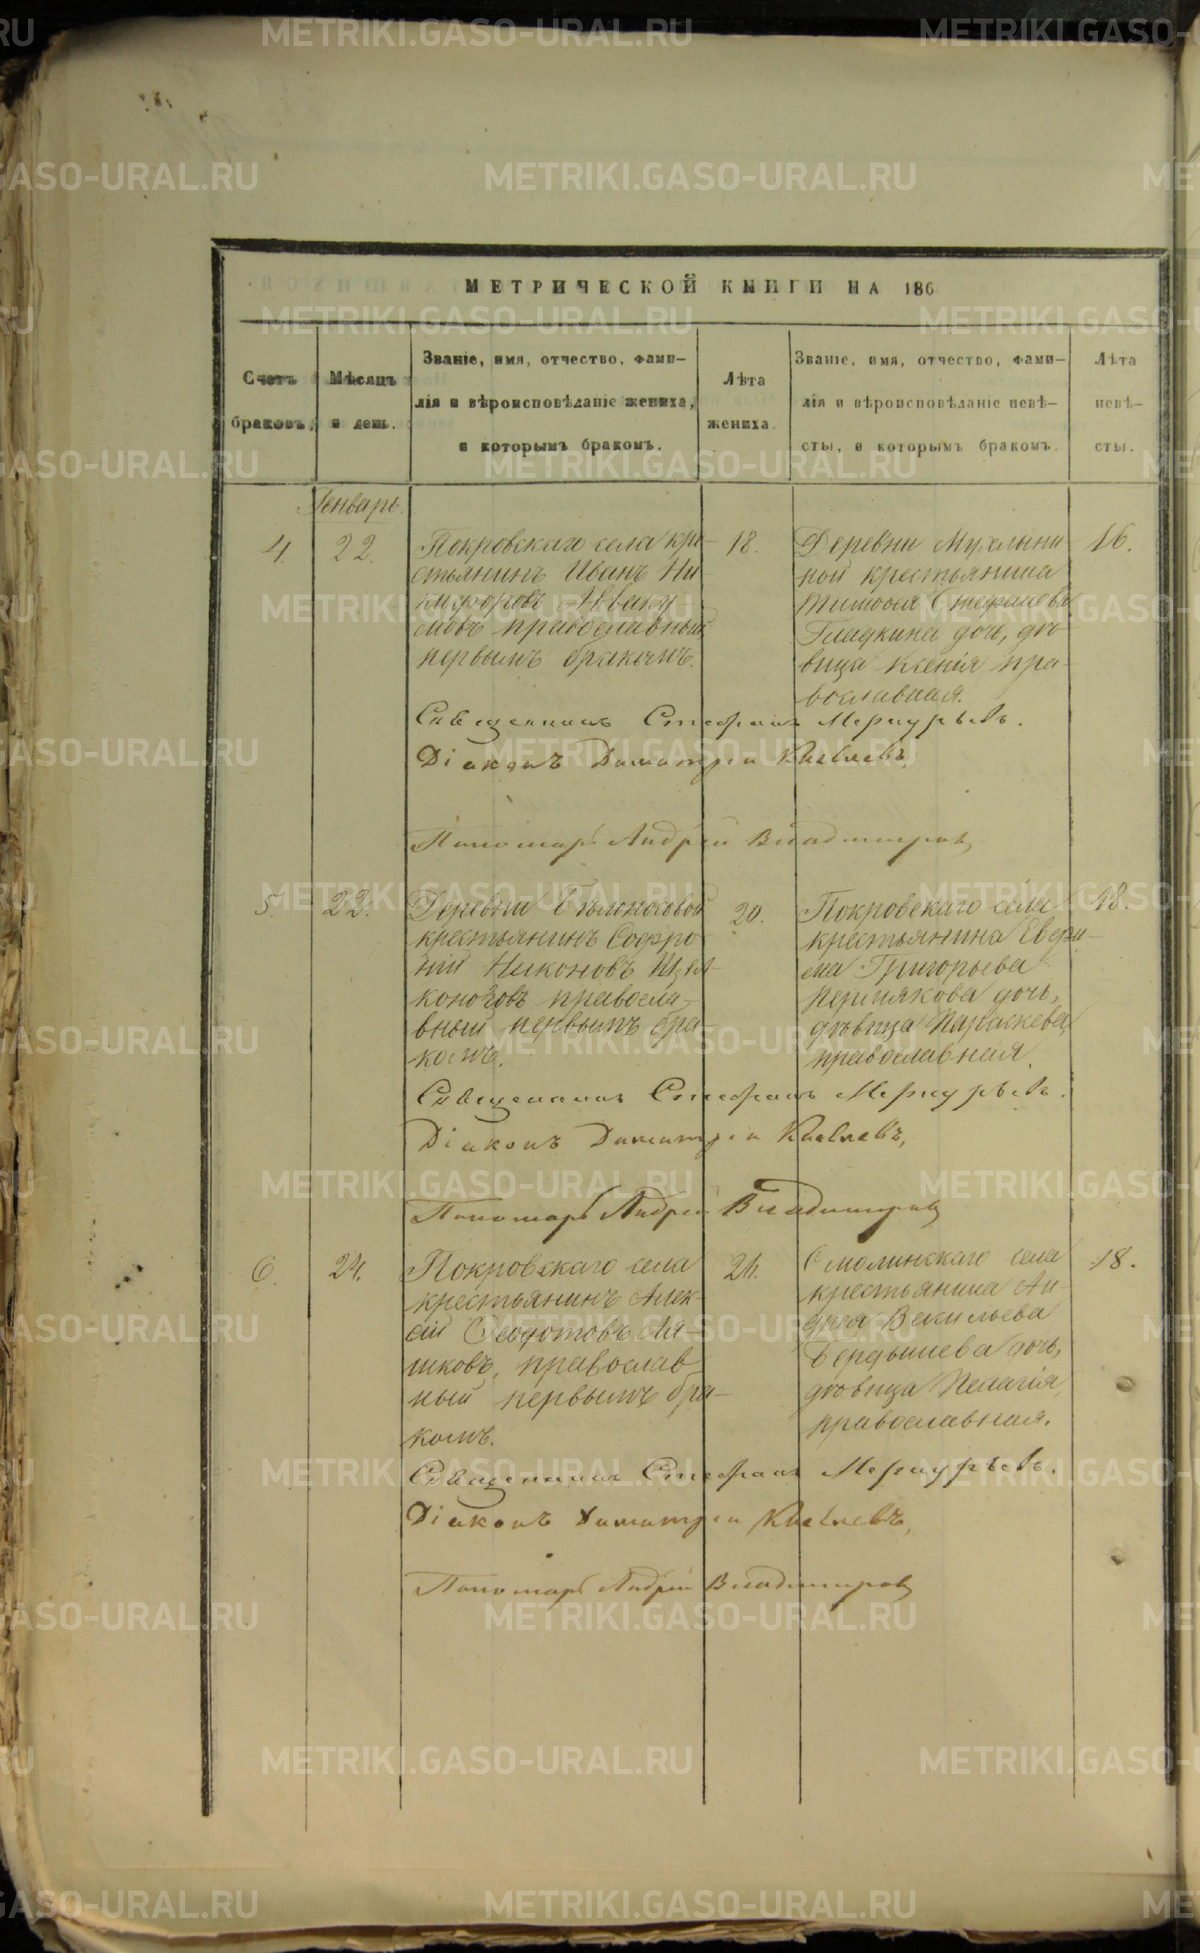 МЕТРИЧЕСКОЙ КНИГИ НА 186
Счетъ браковъ.
Мѣсяцъ и день.
Званіе, имя, отчество, фами-
лія и вѣроисповѣданіе жениха,
и которымъ бракомъ.
Лѣта
жениха.
Званіе, имя, отчество, фами-
лія и вѣроисповѣданіе невѣ-
сты, и которымъ бракомъ.
Лѣта
невѣ-
сты.
Генварь.
4.
22.
Покровскаго села кре-
стьянинъ Иванъ Ни
кифоровъ Авваку
мовъ православный
первымъ бракомъ.
18.
Деревни Мухлыни-
ной крестьянина
Тимофея Стефанова
Гладкина дочь, дѣ-
вица Ксенія пра-
вославная.
16.
Священникъ Стефанъ Меркурьевъ.
Діаконъ Димитрій
Пономарь Андрей Владимировъ
5.
22.
Деревни
крестьянинъ Софро-
ній Никоновъ
православ-
ный первымъ бра
комъ.
20.
Покровскаго села
крестьянина
Григорьева
Пермякова дочь,
дѣвица Параскева,
православная.
18.
Священникъ Стефанъ Меркурьевъ.
Діаконъ Димитрій
Пономарь Андрей Владимировъ
6.
24.
Покровскаго села
крестьянинъ Алек-
сій Ѳеодотовъ
православ
ный первымъ бра-
комъ.
Смолинскаго села
крестьянина Ан-
дрея Васильева
Бердышева дочь,
дѣвица Пелагія,
православная.
18.
Священникъ Стефанъ Меркурьевъ.
Діаконъ Димитрій
Пономарь Андрей Владимировъ
METRIKI.GASO-URAL.RU